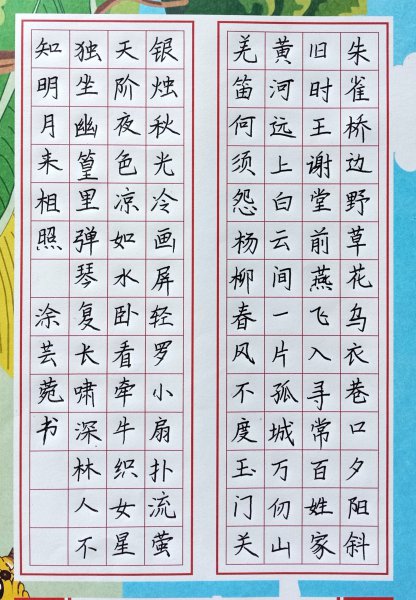 朱雀桥边野草花乌衣巷口夕阳斜
旧时王谢堂前燕飞入寻常百姓家
黄河远上白云间一片孤城万仞山
羌笛何须怨杨柳春风不度玉门关
银烛秋光冷画屏轻罗小扇扑流萤
天阶夜色凉如水卧看牵牛织女星
独坐幽篁里弹琴复长啸深林人不
知明月来相照 涂芸菀书